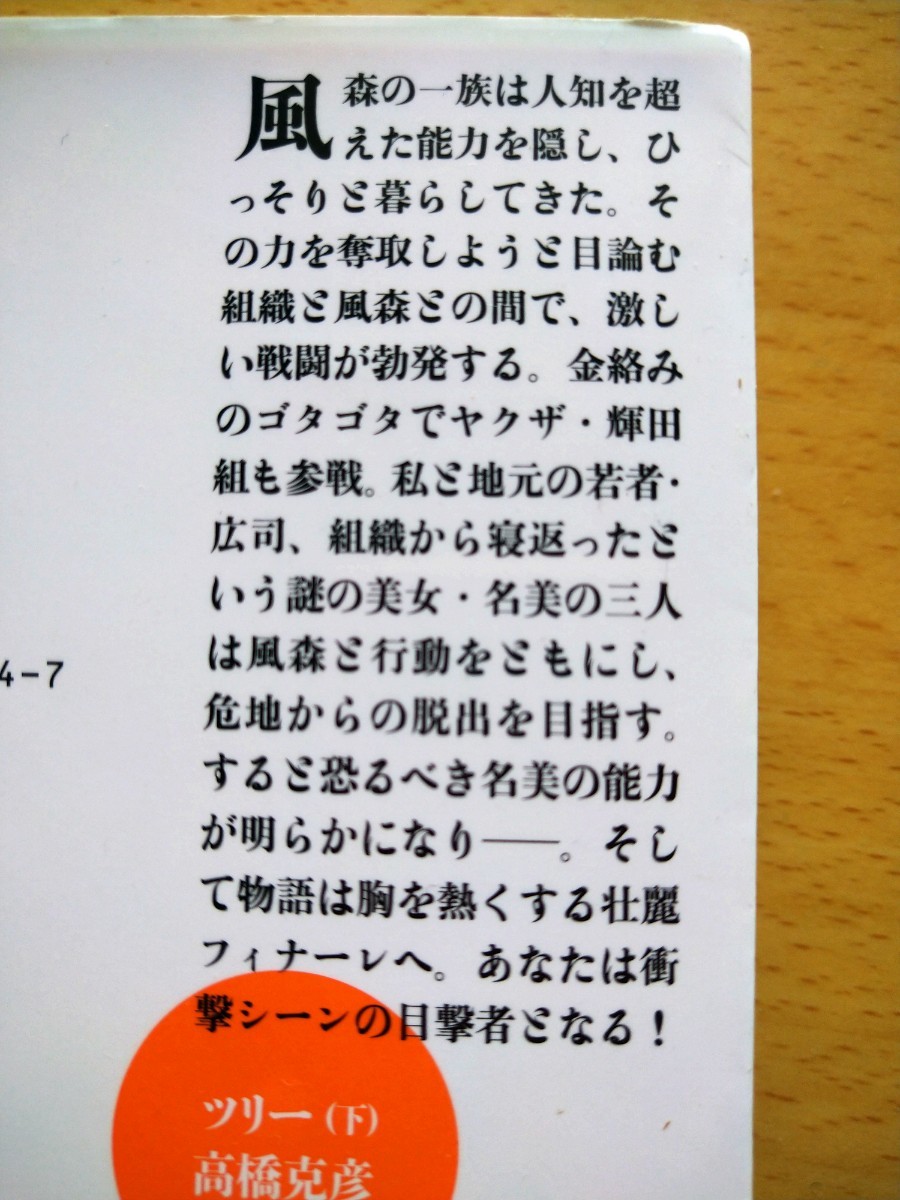 風森の一族は人知を超
えた能力を隠し、ひ
っそりと暮らしてきた。そ
の力を奪取しようと目論む
組織と風森との間で、激し
い戦闘が勃発する。金絡み
のゴタゴタでヤクザ・輝田
組も参戦。私と地元の若者・
広司、組織から寝返ったと
いう謎の美女・名美の三人
は風森と行動をともにし、
危地からの脱出を目指す。
すると恐るべき名美の能力
が明らかになり――。そし
て物語は胸を熱くする壮麗
フィナーレへ。あなたは衝
撃シーンの目撃者となる！
4-7
ツリー（下）
高橋克彦